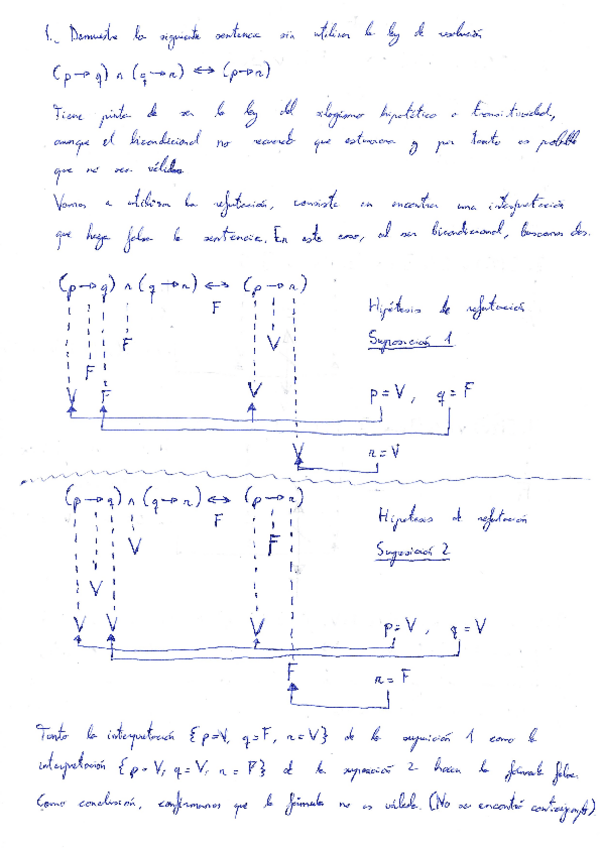 1.- Demuestre la siguiente sentencia sin utilizar la ley de resolución
(p→q) ∧ (q→r) ↔ (p→r)
Tiene pinta de ser la ley del silogismo hipotético o transitividad,
aunque el bicondicional no recuerdo que estuviera y por tanto es probable
que no sea válida
Vamos a utilizar la refutación, consiste en encontrar una interpretación
que haga falsa la sentencia. En este caso, al ser bicondicional, buscamos dos.
(p→q) ∧ (q→r) ↔ (p→r)
F
Hipótesis de refutación
F
V
Suposición 1
F
V F V p=V, q=F
V r=V
(p→q) ∧ (q→r) ↔ (p→r)
F
Hipótesis de refutación
V
F
Suposición 2
V
V V V p=V, q=V
F r=F
Tanto la interpretación {p=V, q=F, r=V} de la suposición 1 como la
interpretación {p=V, q=V, r=F} de la suposición 2 hacen la fórmula falsa.
Como conclusión, confirmamos que la fórmula no es válida. (No se encontró)